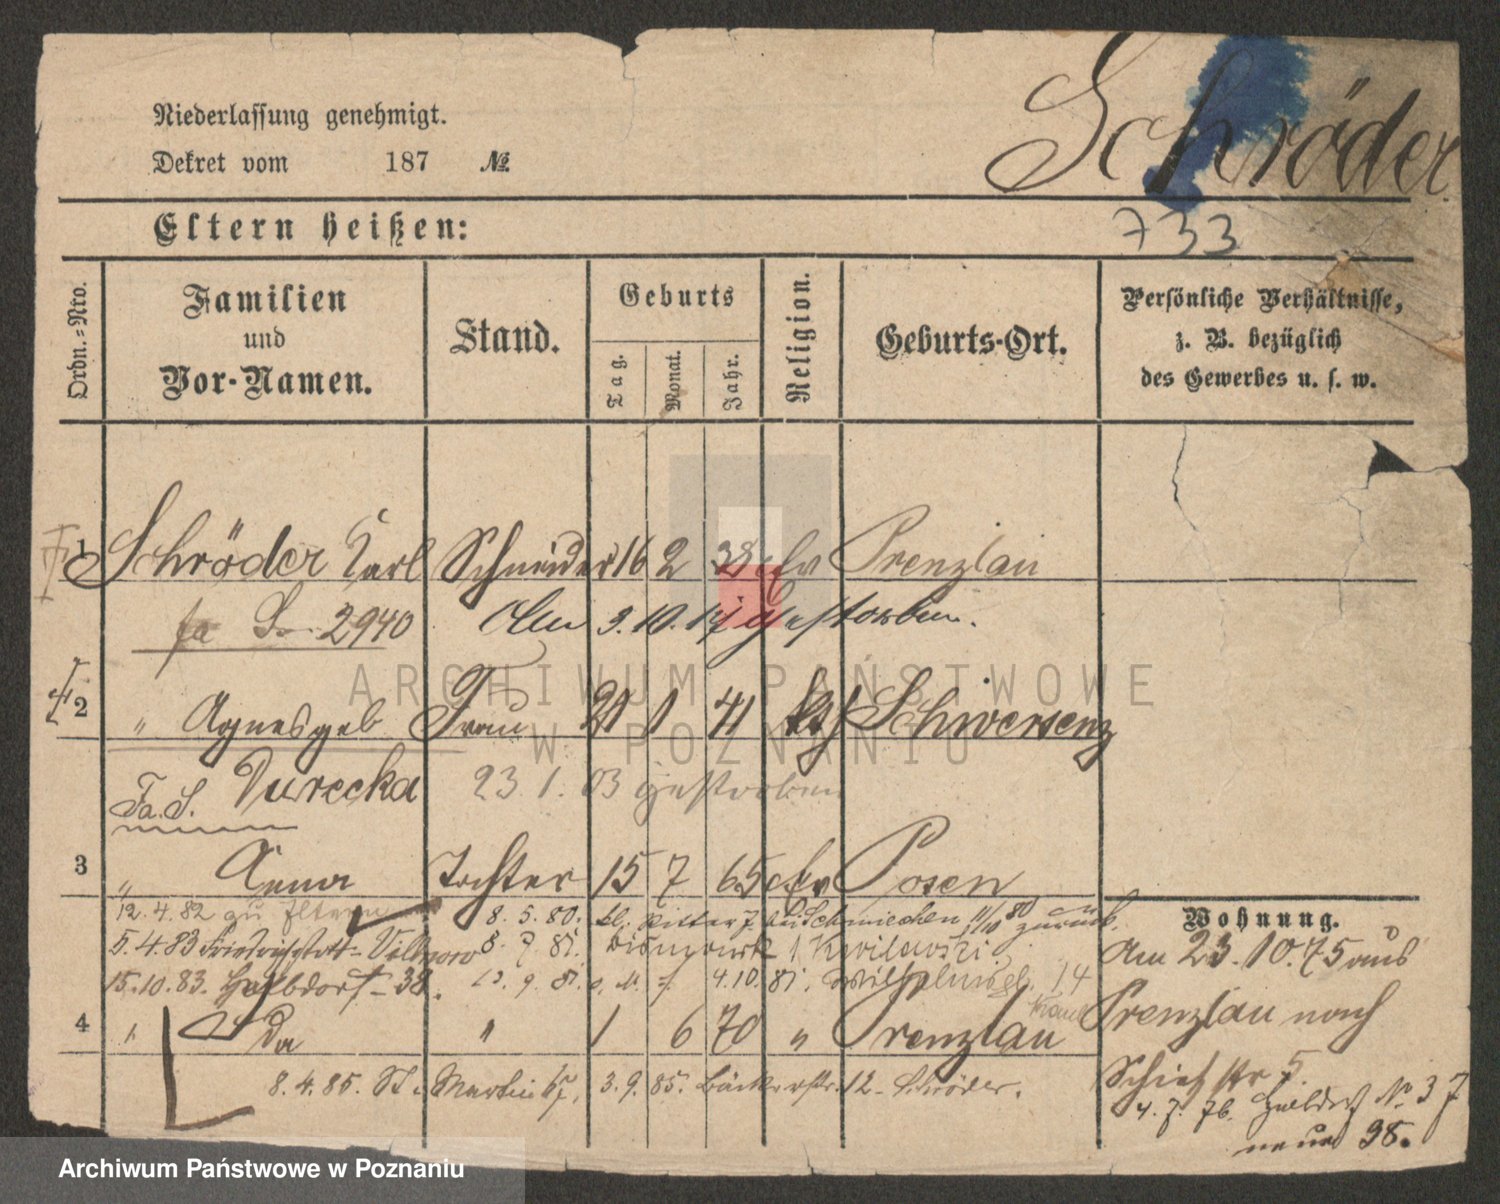 Niederlassung genehmigt.
Dekret vom 187 №
Schröder
Eltern heißen:
733
Ordn.-Nro.
Familien und Vor-Namen.
Stand.
Geburts
Tag.
Monat.
Jahr.
Religion.
Geburts-Ort.
Persönliche Verhältnisse, z. B. bezüglich des Gewerbes u. s. w.
1 Schröder Karl Schneider 16 2 38 Ev Prenzlau
fa S. 2940 Am 3.10. gestorben.
2 " Agnes geb Frau 21 1 41 kth Schwersenz
Fa. S. Durecka 23.1.03 gestorben
3 " Anna Tochter 15 7 65 Ev Posen
12.4.82 zu Eltern 8.5.80. kl. Ritter 7. bei Schmiechen 11/10 80 zurück.
5.4.83 8.7.81. Bismarck 1
15.10.83. Halbdorf - 38. 4.10.81. Wilhelmspl. 14
4 " Da " 1 6 70 " Prenzlau
8.4.85. St. Martin 67, 3.9.85. Bäckerstr. 12 - Schröder.
Wohnung.
Am 23.10.75 aus
Prenzlau nach
Schießstr 5.
4.7.76. Halbdorf No 37
neue 38.
ARCHIWUM PAŃSTWOWE
W POZNANIU
Archiwum Państwowe w Poznaniu